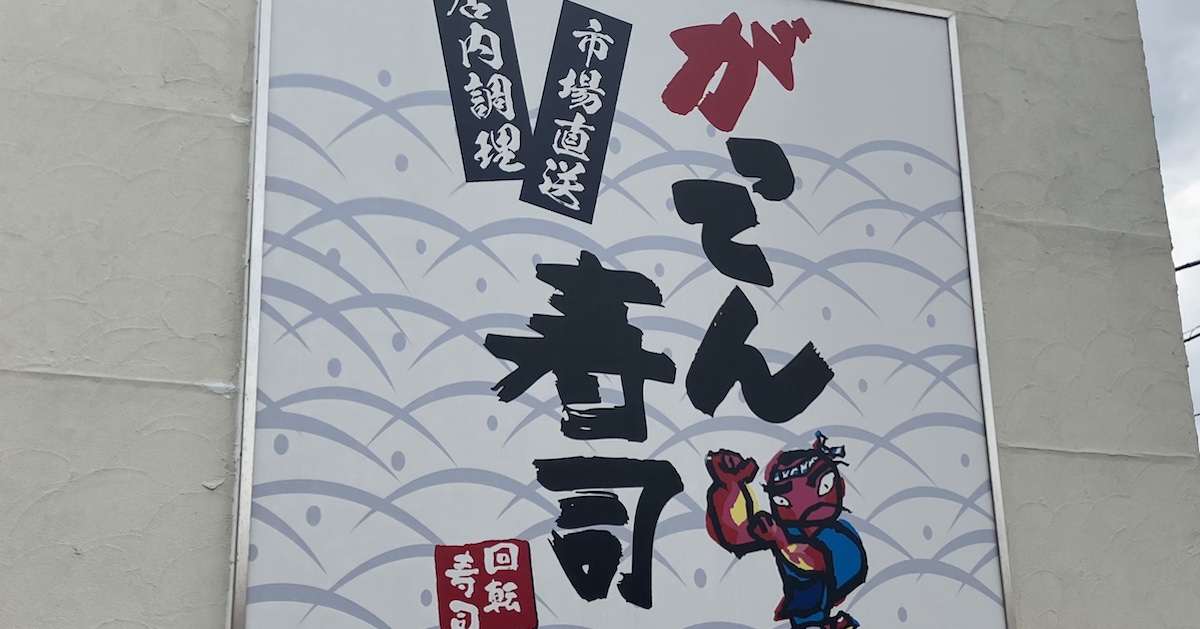 がてん
寿司
市場直送
店内調理
回転
寿司